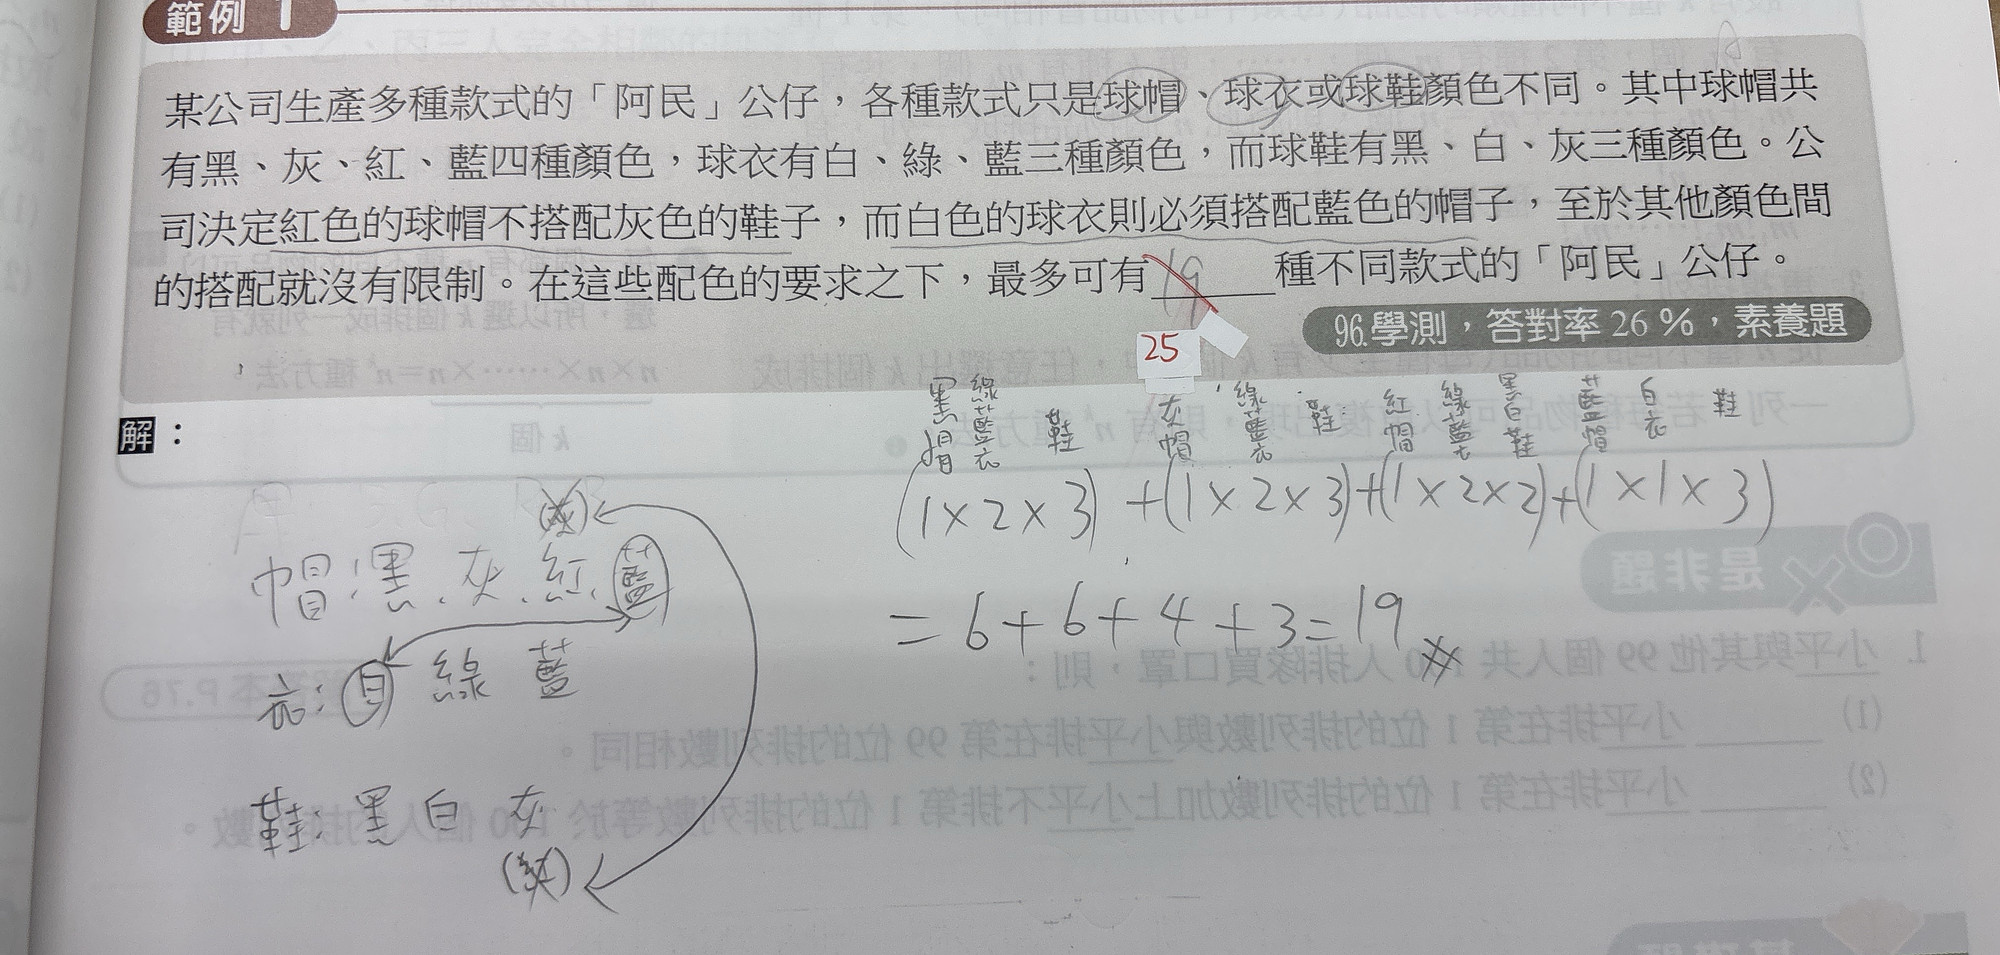 範例 1
某公司生產多種款式的「阿民」公仔，各種款式只是球帽、球衣或球鞋顏色不同。其中球帽共
有黑、灰、紅、藍四種顏色，球衣有白、綠、藍三種顏色，而球鞋有黑、白、灰三種顏色。公
司決定紅色的球帽不搭配灰色的鞋子，而白色的球衣則必須搭配藍色的帽子，至於其他顏色間
的搭配就沒有限制。在這些配色的要求之下，最多可有 19 種不同款式的「阿民」公仔。
25
96.學測，答對率 26 %，素養題
解：
黑帽 綠藍衣 鞋 灰帽 綠藍衣 鞋 紅帽 綠藍衣 黑白鞋 藍帽 白衣 鞋
(1×2×3)+(1×2×3)+(1×2×2)+(1×1×3)
=6+6+4+3=19
(灰)
帽:黑、灰、紅、藍
衣:白 綠 藍
鞋:黑 白 灰
(紅)
是非題
1. 小平與其他 99 個人共 100 人排隊買口罩，則：
(1) 小平排在第 1 位的排列數與小平排在第 99 位的排列數相同。
(2) 小平排在第 1 位的排列數加上小平不排第 1 位的排列數等於 100 個人的排列數。